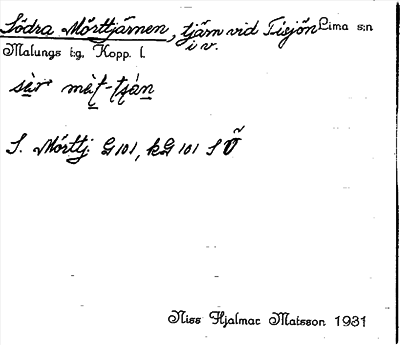 Södra Mörttjärnen, tjärn vid Tisjön Lima s:n
i v.
Malungs t:g, Kopp. l.
sèr mèt-tsàn
S. Mörttj. G 101, kG 101 S Ö
Niss Hjalmar Matsson 1931